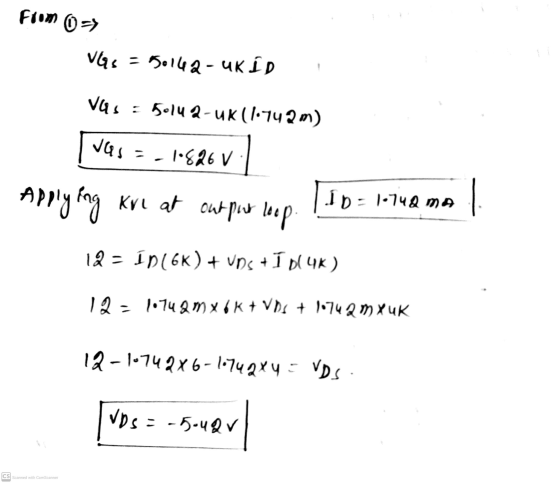 From ① ⇒
VGS = 5.142 - 4K ID
VGS = 5.142 - 4K (1.742m)
VGS = - 1.826 V
Applying KVL at output loop. ID = 1.742 mA
12 = ID(6K) + VDS + ID(4K)
12 = 1.742m x 6K + VDS + 1.742m x 4K
12 - 1.742 x 6 - 1.742 x 4 = VDS.
VDS = - 5.42 V
CS